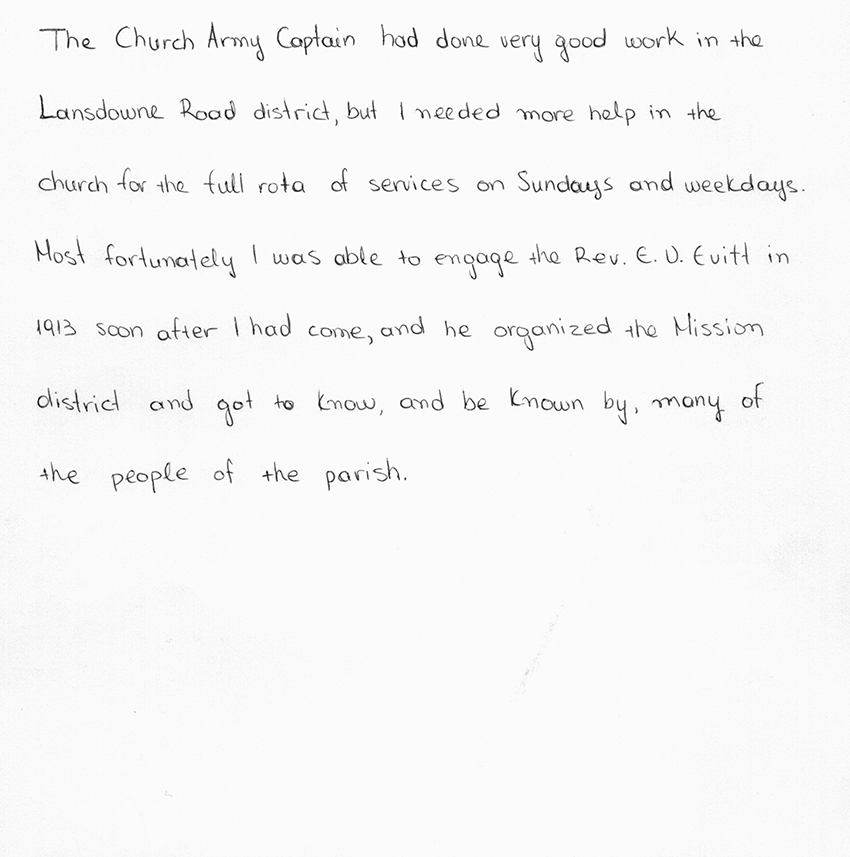 The Church Army Captain had done very good work in the
Lansdowne Road district, but I needed more help in the
church for the full rota of services on Sundays and weekdays.
Most fortunately I was able to engage the Rev. E. V. Evitt in
1913 soon after I had come, and he organized the Mission
district and got to know, and be known by, many of
the people of the parish.